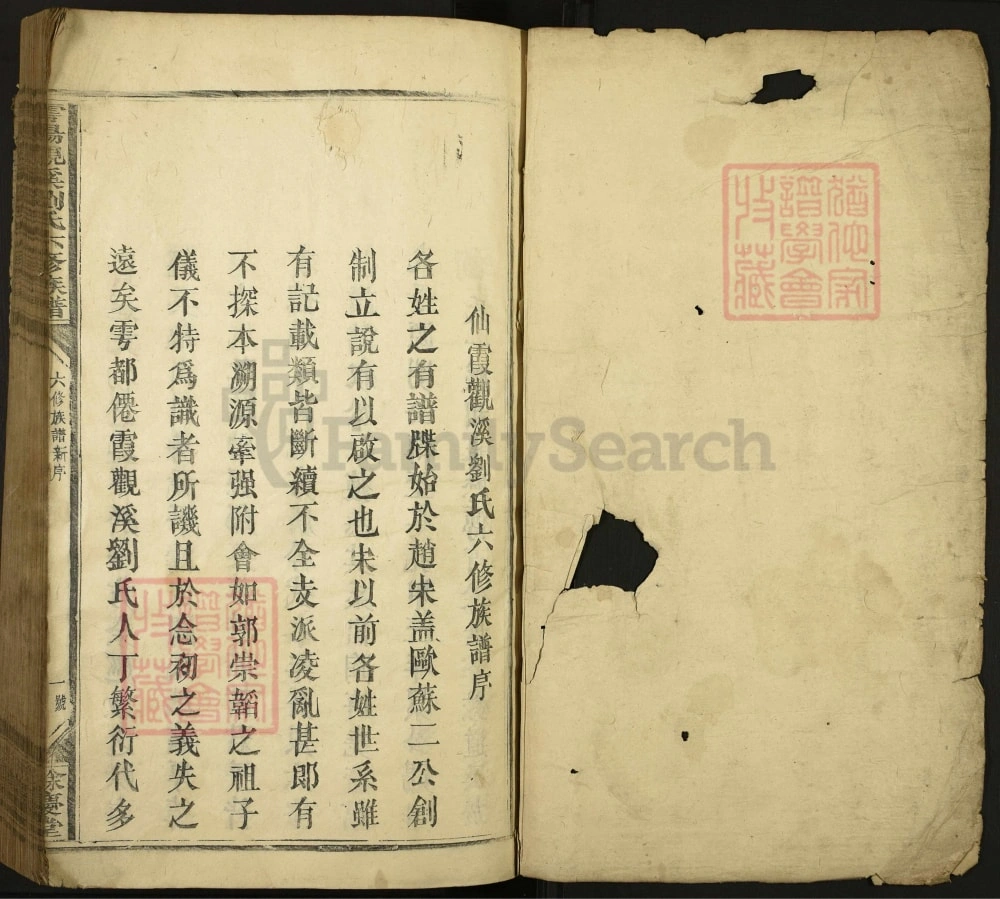 仙霞觀溪劉氏六修族譜序
各姓之有譜牒始於趙宋盖歐蘇二公創
制立說有以啟之也宋以前各姓世系雖
有記載類皆斷續不全支派凌亂甚即有
不探本溯源牽强附會如郭崇韜之祖子
儀不特爲識者所譏且於念初之義失之
遠矣雩都僊霞觀溪劉氏人丁繁衍代多
雩陽觀溪劉氏六修族譜
六修族譜新序
一號
餘慶堂
猶他家
譜學會
收藏
猶他家
譜學會
收藏
FamilySearch